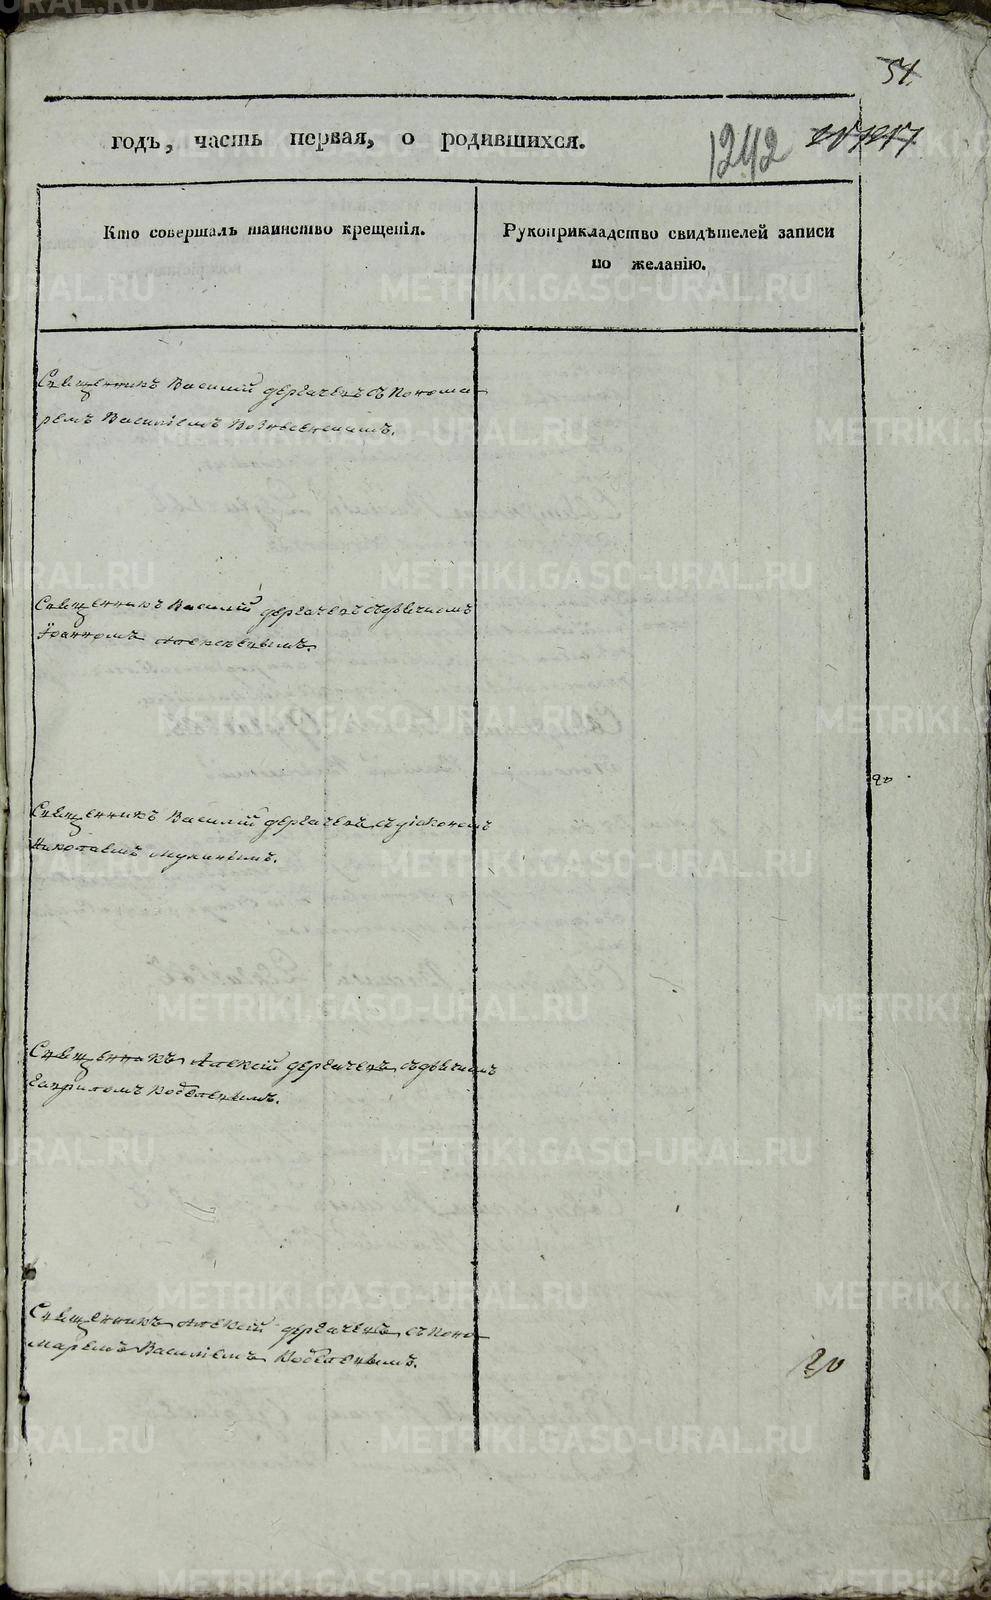 51.
годъ, часть первая, о родившихся.
1242
Кто совершалъ таинство крещенія.
Рукоприкладство свидѣтелей записи
по желанію.
Священникъ Василій Дергачевъ съ Понома
ремъ Василіемъ Вознесенскимъ.
Священникъ Василій Дергачевъ съ дьячкомъ
Іоанномъ Алексѣевымъ.
Священникъ Василій Дергачевъ съ діакономъ
Николаемъ
Священникъ Алексій Дергачевъ съ дьячкомъ
Гавриломъ Кобелевымъ.
Священникъ Алексій Дергачевъ съ Поно
маремъ Василіемъ Кобелевымъ.
METRIKI.GASO-URAL.RU